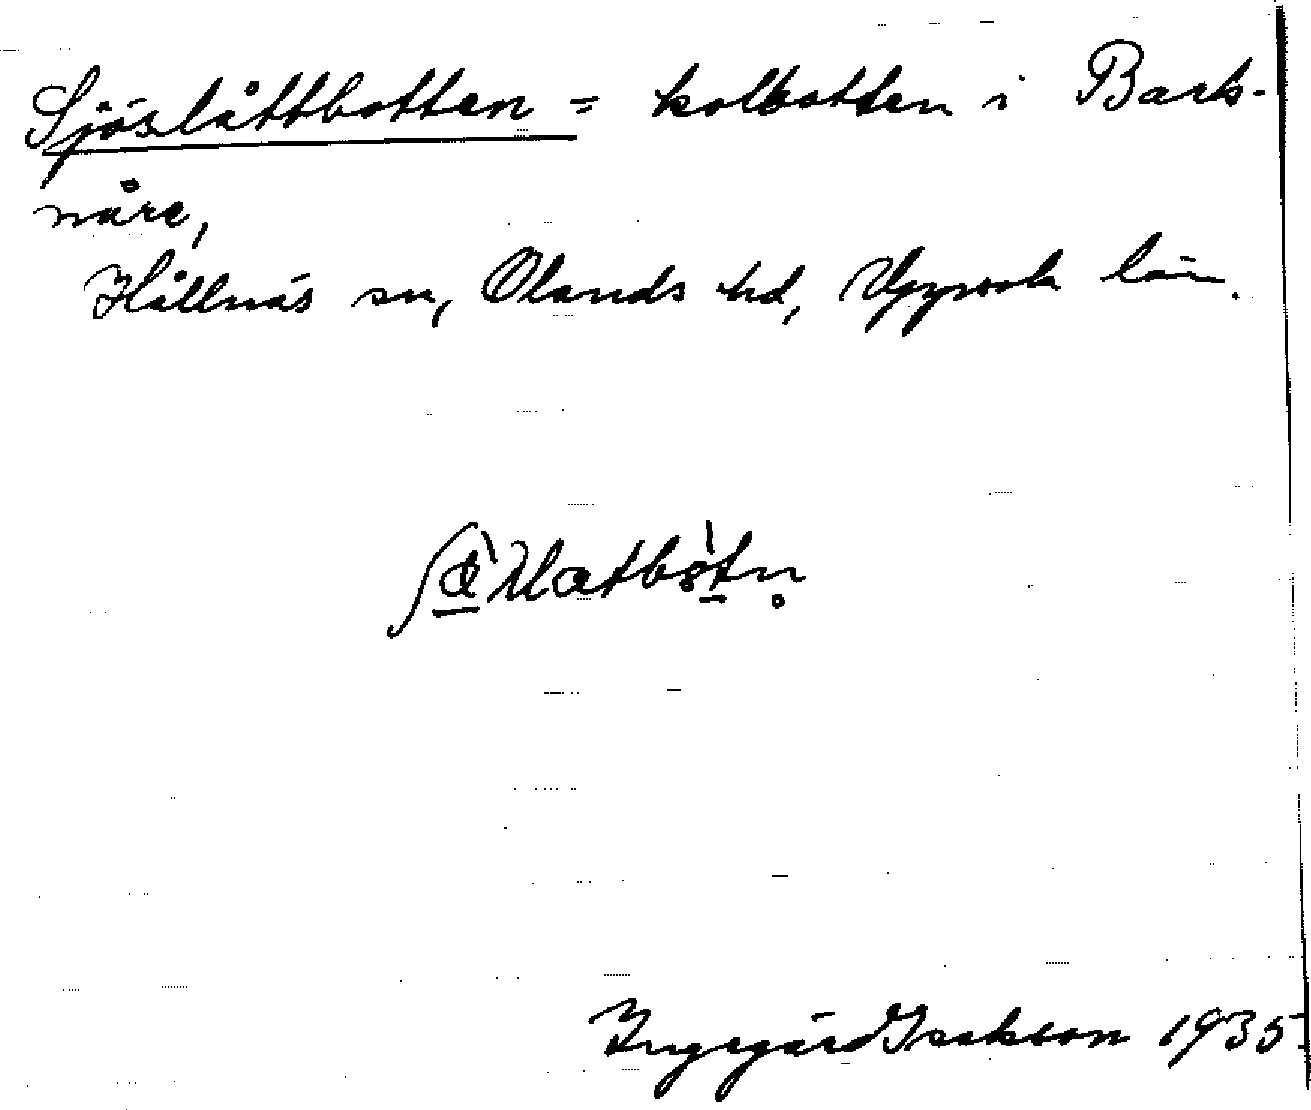 Sjöslåttbotten = kolbotten i Barknåre,
Hållnäs sn, Olands hd, Uppsala län.
Ingegärd Isakson 1935